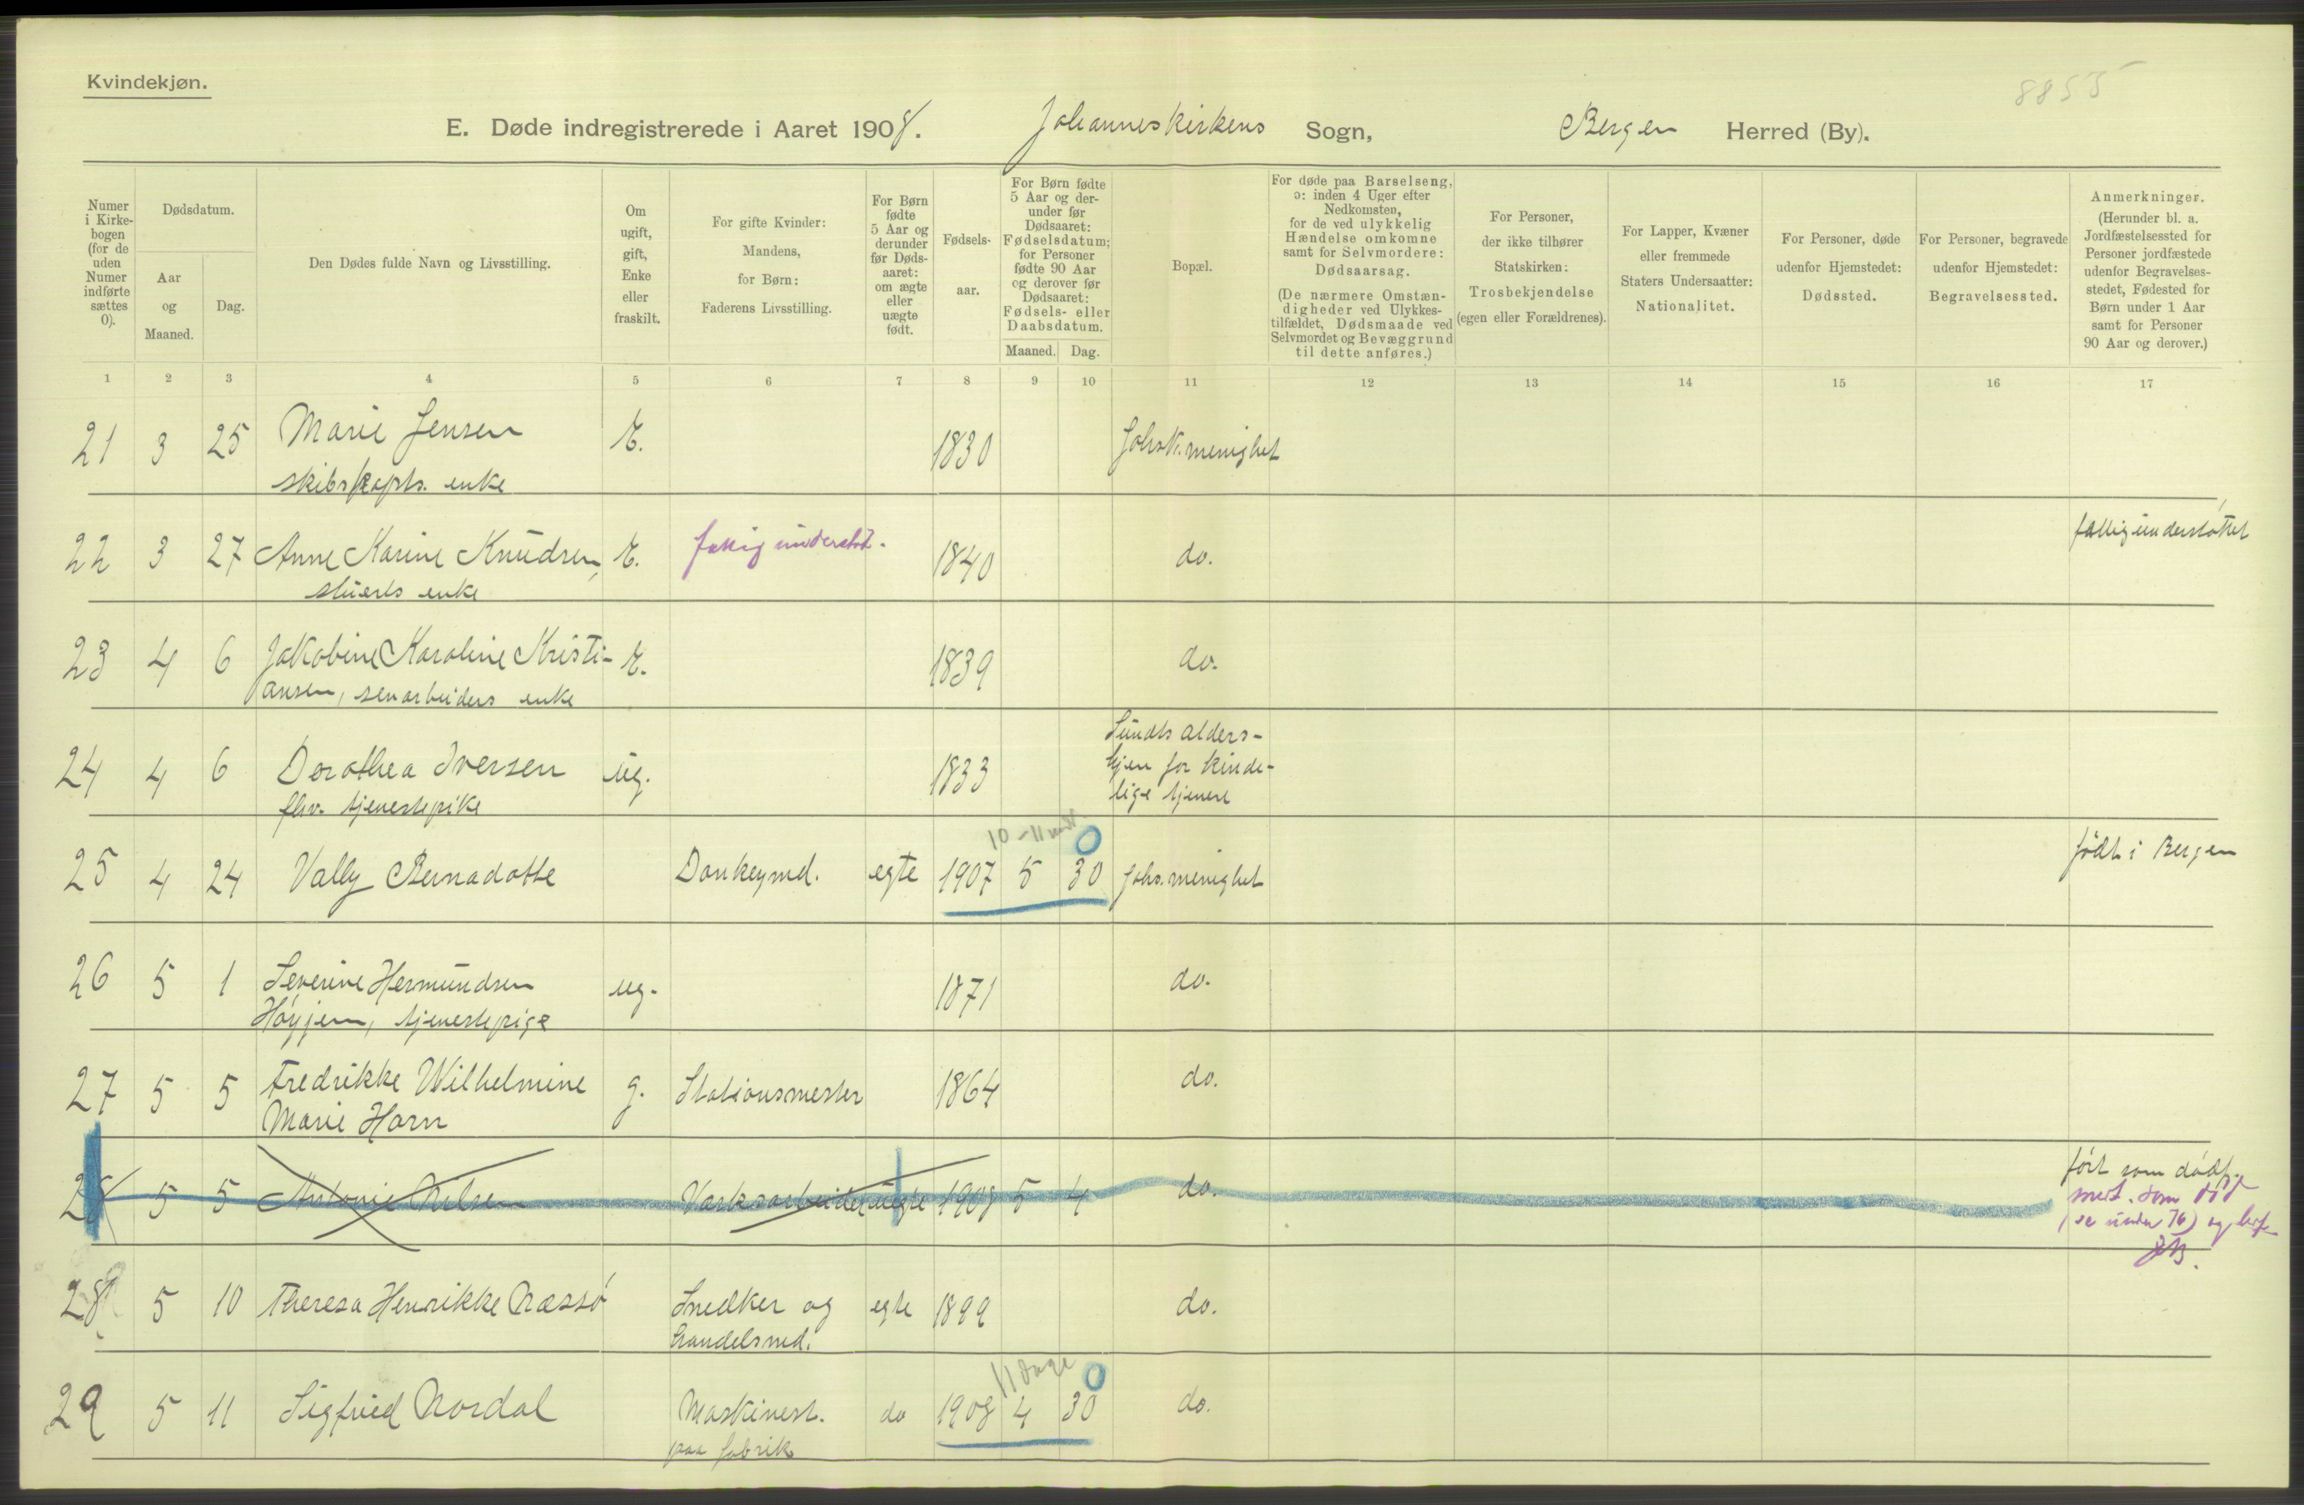 Kvindekjøn.
8855
E. Døde indregistrerede i Aaret 1908. Johanneskirkens Sogn, Bergen Herred (By).
Numer i Kirke-bogen (for de uden Numer indførte sættes 0).
Dødsdatum.
Aar og Maaned.
Dag.
Den Dødes fulde Navn og Livsstilling.
Om ugift, gift, Enke eller fraskilt.
For gifte Kvinder: Mandens, for Børn: Faderens Livsstilling.
For Børn fødte 5 Aar og derunder før Døds-aaret: om ægte eller uægte født.
Fødsels-aar.
For Børn fødte 5 Aar og der-under før Dødsaaret: Fødselsdatum; for Personer fødte 90 Aar og derover før Dødsaaret: Fødsels- eller Daabsdatum.
Maaned. Dag.
Bopæl.
For døde paa Barselseng, ɔ: inden 4 Uger efter Nedkomsten, for de ved ulykkelig Hændelse omkomne samt for Selvmordere: Dødsaarsag.
(De nærmere Omstæn-digheder ved Ulykkes-tilfældet, Dødsmaade ved Selvmordet og Bevæggrund til dette anføres.)
For Personer, der ikke tilhører Statskirken: Trosbekjendelse (egen eller Forældrenes).
For Lapper, Kvæner eller fremmede Staters Undersaatter: Nationalitet.
For Personer, døde udenfor Hjemstedet: Dødssted.
For Personer, begravede udenfor Hjemstedet: Begravelsessted.
Anmerkninger. (Herunder bl. a. Jordfæstelsessted for Personer jordfæstede udenfor Begravelses-stedet, Fødested for Børn under 1 Aar samt for Personer 90 Aar og derover.)
1 2 3 4 5 6 7 8 9 10 11 12 13 14 15 16 17
21 3 25 Marie Jensen E. 1830 Johsk. menighet
skibskapts. enke
22 3 27 Anne Karine Knudsen, E. fattig understøt. 1840 do. fattigunderstøttet
stuerts enke
23 4 6 Jakobine Karoline Kristi- E. 1839 do.
ansen, arbeiders enke
24 4 6 Dorothea Iversen ug. 1833 Sundts alders-
hjem for kvinde-
lige tjenere
fhv. tjenestepike
10-11 mdr. 0
25 4 24 Vally Bernadotte Donkeymd. egte 1907 5 30 Johs. menighet født i Bergen
26 5 1 Severine Hermundsen ug. 1871 do.
Høyjem, tjenestepige
27 5 5 Fredrikke Wilhelmine g. Stationsmester 1864 do.
Marie Horn
28 5 5 Antonie Nilsen Verksarbeider uegte 1908 5 4 do. ført som dødf.
som død
(se under 76) og
28 5 10 Theresa Henrikke Næssø Snedker og egte 1899 do.
handelsmd.
11 dage 0
29 5 11 Sigfried Nordal Maskinest. do 1908 4 30 do.
paa fabrik